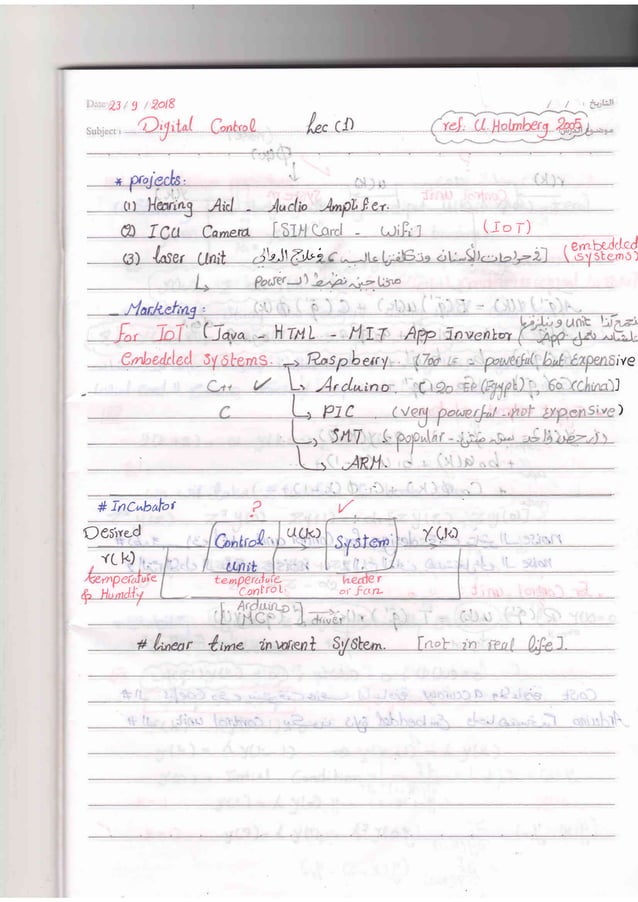 Date: 23 / 9 / 2018 / / التاريخ:
Subject: Digital Control Lec (1) ref. U. Holmberg 2005
* projects:
(1) Hearing Aid - Audio Amplifier.
(2) ICU Camera [SIM Card - Wifi] (IoT)
(3) laser Unit [في جراحات الأسنان وتكلفتها عالية وفي علاج الدوالي] (embedded systems)
↳ محتاجين نضبط الـ Power
_ Marketing:
For IoT (Java - HTML - MIT App Inventor (
Embedded Systems. → Raspberry. (700 LE = powerful but Expensive
C++ ✓ ↳ Arduino. [120 EP (Egypt) , 60 (China)]
C ↳ PIC . (very powerful - not expensive)
↳ SMT ( popular -
↳ ARM.
# Incubator ? ✓
Desired r(k) Control unit U(k) System Y(k)
temperature & Humdity temperature Control. header or fan
[Arduino MC] driver
# linear time invarient System. [not in real life].